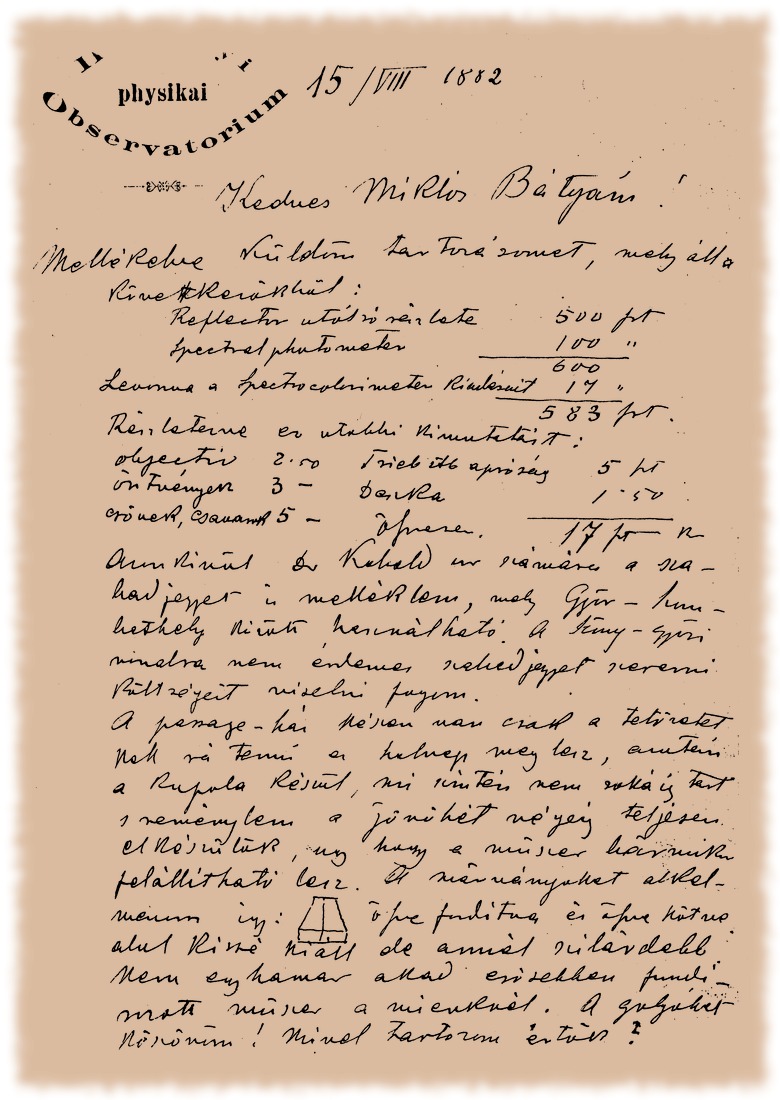 physikai
Observatorium
15/VIII 1882
Kedves Miklós Bátyám!
Mellékelve küldöm tartozásomat, mely áll a
következőkből:
Reflector utolsó részlete 500 frt
Spectralphotometer 100 "
600
Levonva a Spectrocolorimeter kiadásait 17 "
583 frt.
Részletezve ez utóbbi kimutatást:
objectiv 2.50 apróság 5 frt
öntvények 3 – Deszka 1.50
csövek, csavarok 5 – össesen. 17 frt
Azonkívül Dr Kobold úr számára a sza-
badjegyet is melléklem, mely Győr – Szom-
bathely közt használható. A Fény – győri
vonalra nem érdemes szabadjegyet szerezni
költségeit viselni fogom.
A passage-ház készen van csak a tetőzetet
kell rá tenni ez holnap meg lesz, azután
a kupola készül, mi szintén nem sokáig tart
s reménylem a jövő hét végéig teljesen
elkészülök, úgy hogy a műszer bármikor
felállítható lesz. A márványokat alkal-
mazom így: össze fordítva és össze kötve
alul kissé kiáll de annál szilárdabb.
Nem egyhamar akad erősebben fundá-
rozott műszer a mienknél. A golyókat
köszönöm! Mivel tartozom értök?